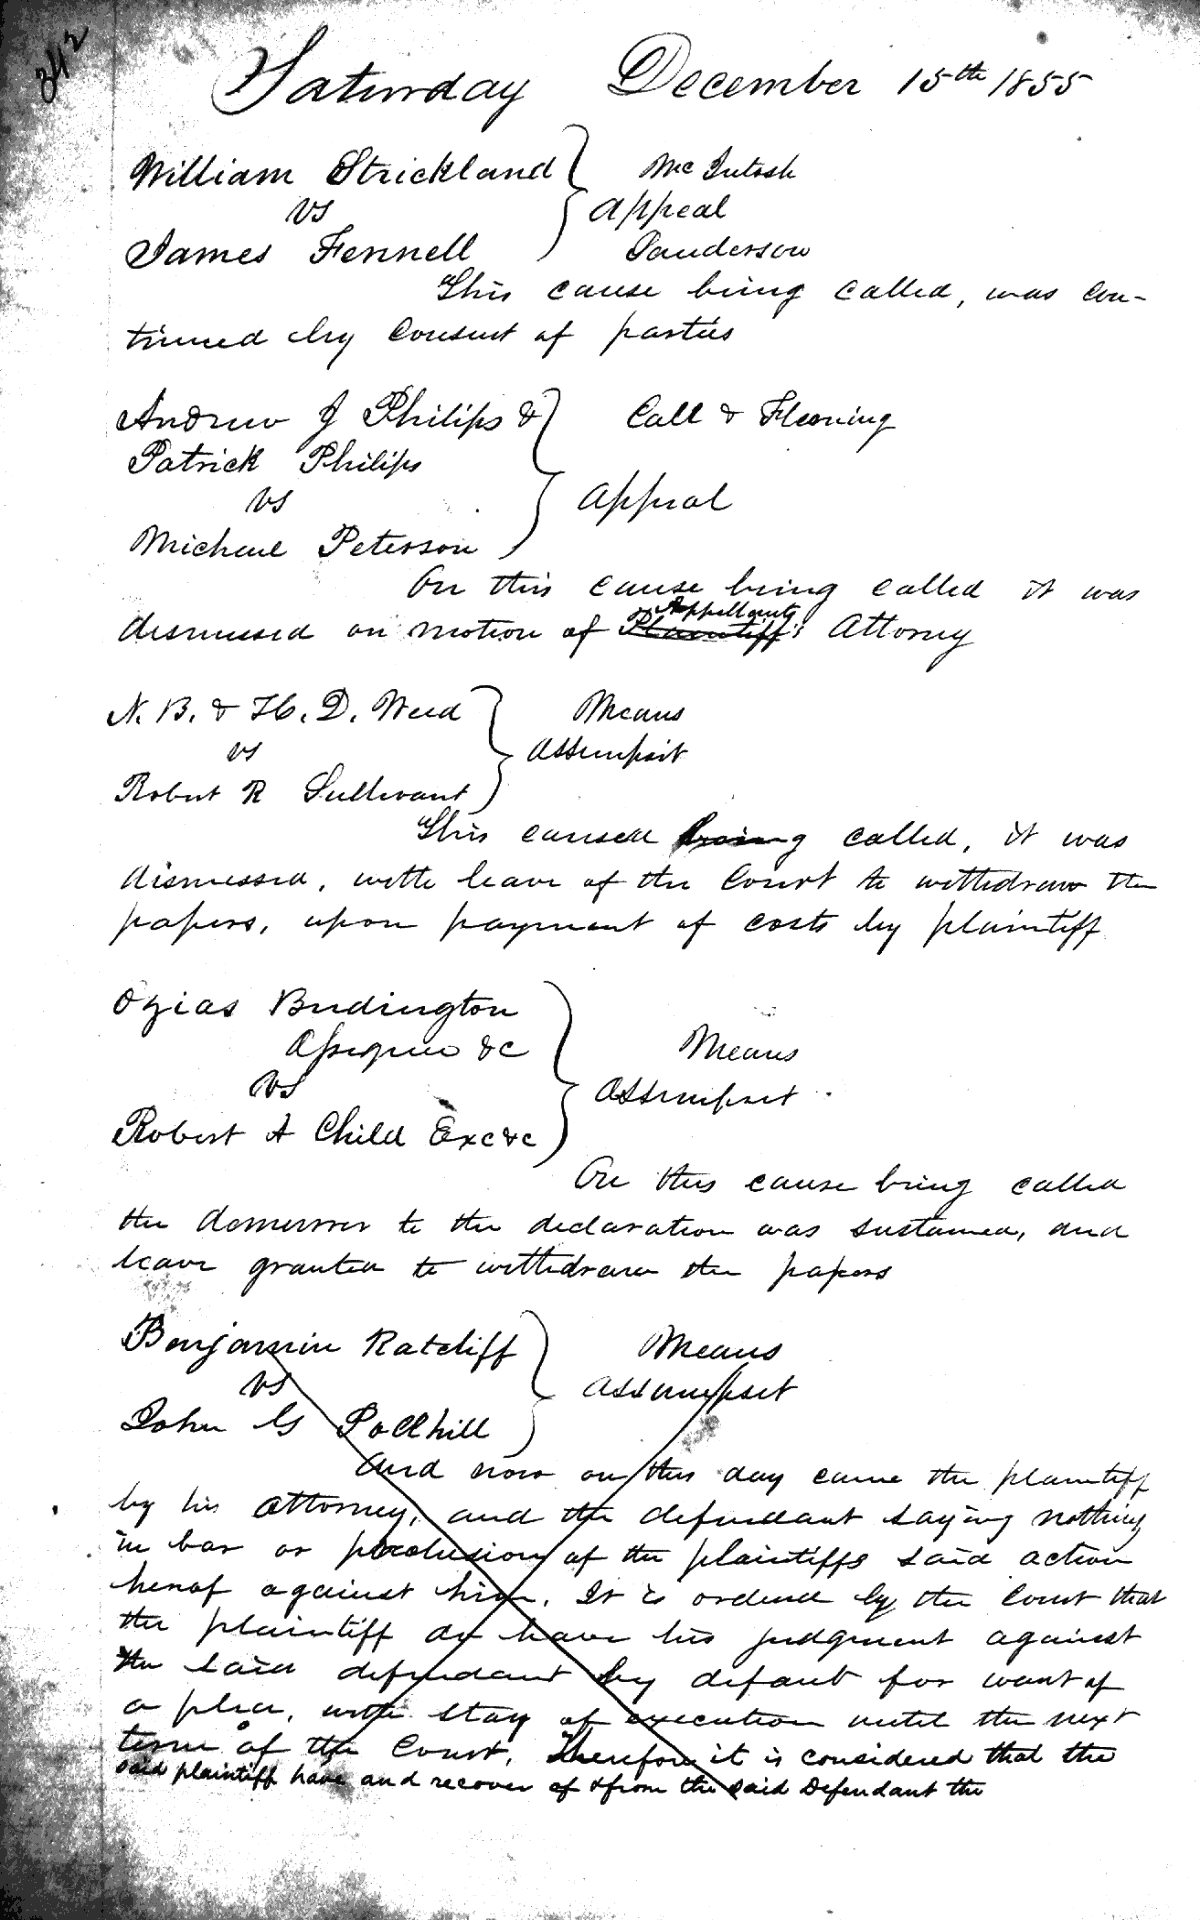 342
Saturday December 15th 1855
William Strickland McIntosh
vs Appeal
James Fennell Sanderson
This cause being called, was con-
tinued by Consent of parties
Andrew J Philips & Call & Fleming
Patrick Philips
vs Appeal
Micheal Peterson
On this cause being called it was
Appellants
dismissed on motion of Plaintiff's Attorney
N. B. & H. D. Weed Means
vs Assumpsit
Robert R Sullivant
This caused being called, it was
dismissed, with leave of the Court to withdraw the
papers, upon payment of costs by plaintiff
Ozias Budington
Assignee &c Means
vs Assumpsit
Robert A Child Exc &c
On this cause being called
the demurrer to the declaration was sustained, and
leave granted to withdraw the papers
Benjamin Ratcliff Means
vs Assumpsit
John G Polhill
And now on this day came the plaintiff
by his attorney, and the defendant saying nothing
in bar or preclusion of the plaintiffs said action
hereof against him. It is ordered by the Court that
the plaintiff do have his judgment against
the said defendant by default for want of
a plea, with stay of execution until the next
term of the Court. Therefore it is considered that the
said plaintiff have and recover of & from the said Defendant the